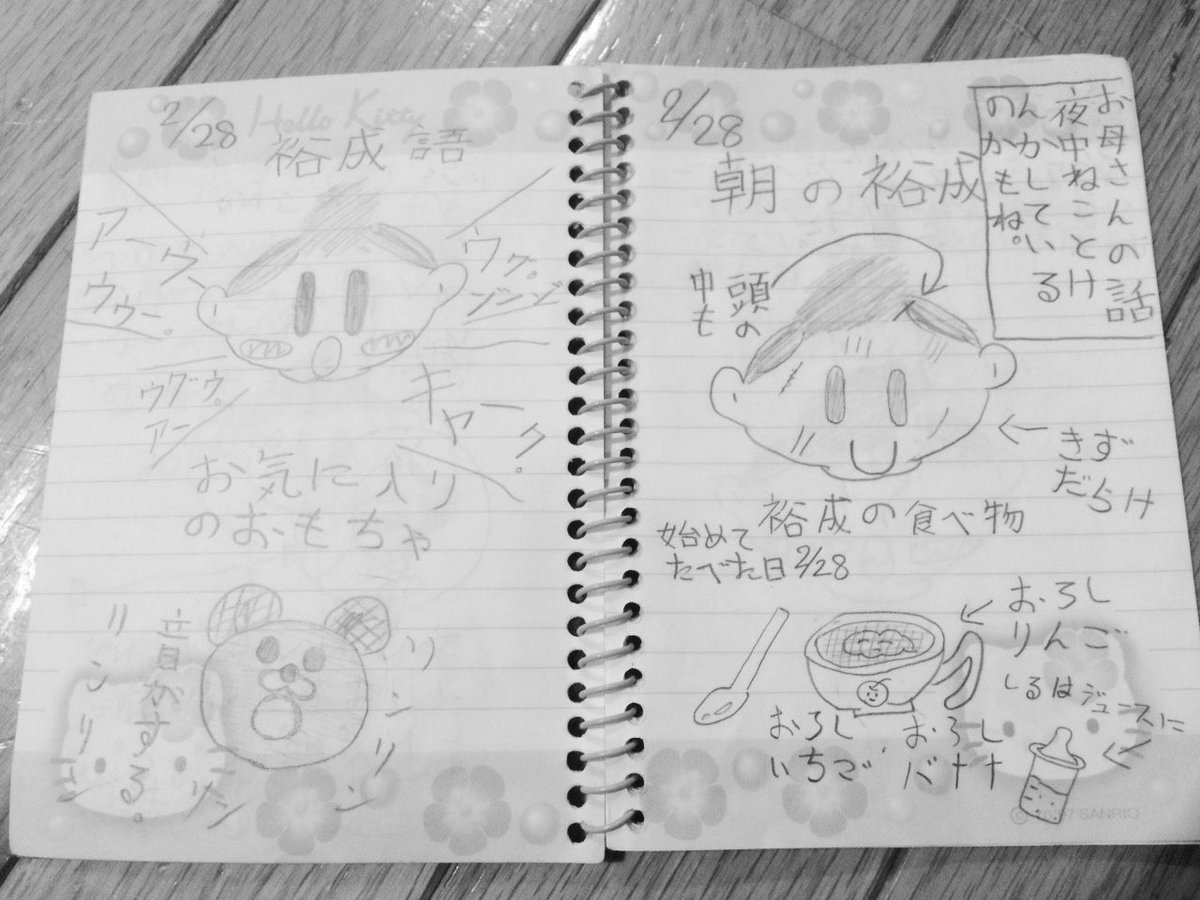 2/28
Hello Kitty
裕成語
アーウー
ウゥー。
ウグゥ。
アー
ウグ。
ブブーブ
キャーク。
お気に入り
のおもちゃ
リンリン
音がする。
リンリン
2/28
朝の裕成
お母さんの話
夜中ねことけ
んかしている
のかもね。
頭の
中も
きず
だらけ
裕成の食べ物
始めて
たべた日2/28
おろし
りんご
しるはジュースに
おろし
いちご、
おろし
バナナ
SANRIO